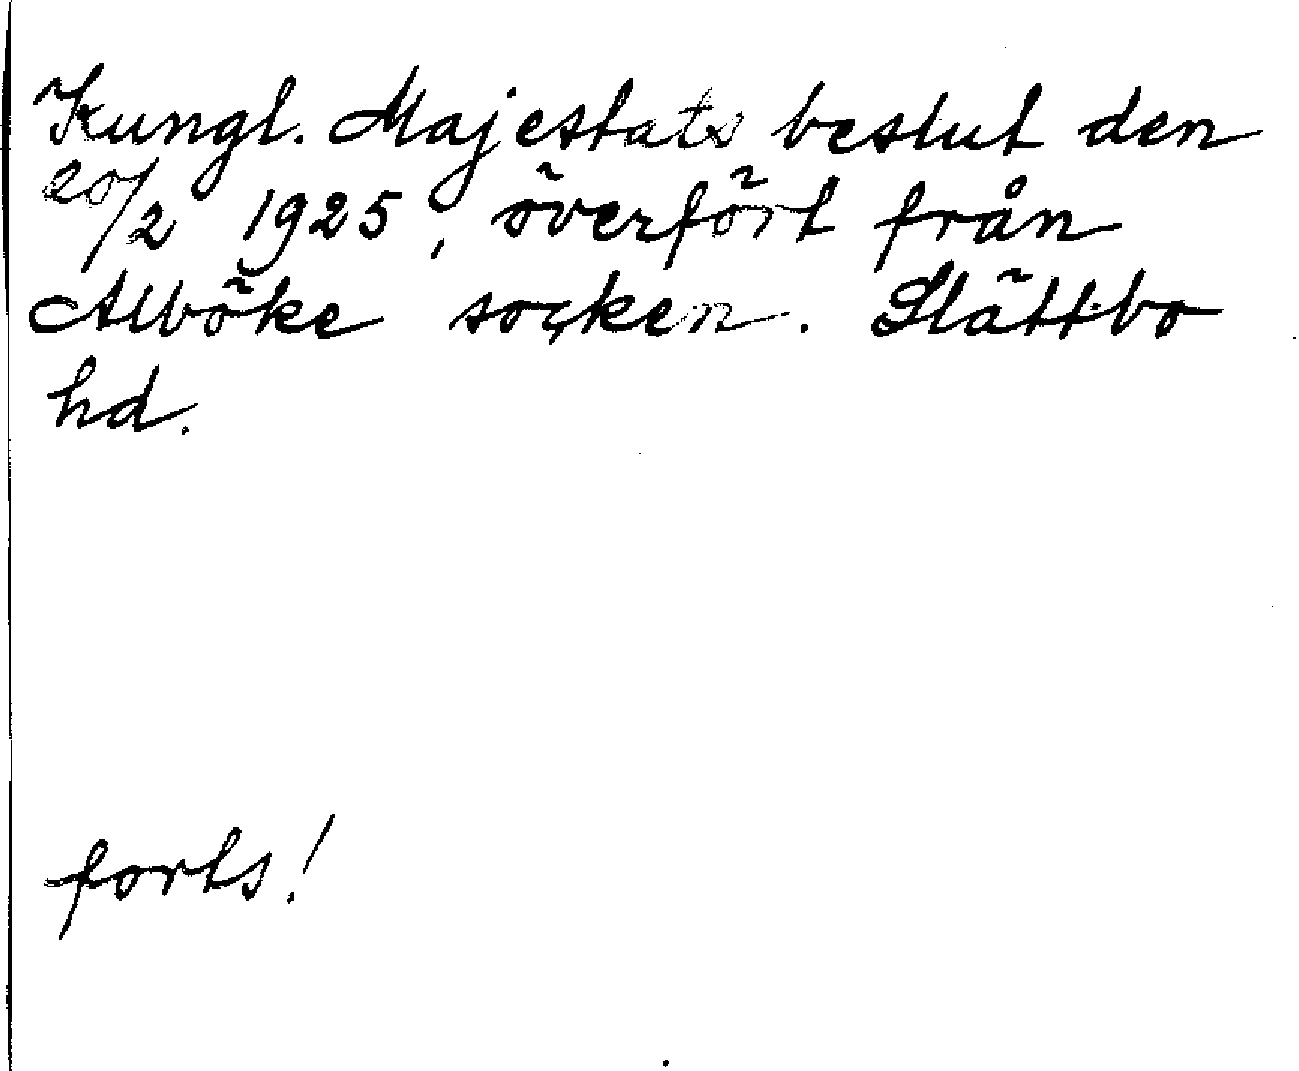 Kungl. Majestats beslut den
20/2 1925, överfört från
Alböke socken. Slättbo
hd.
forts!